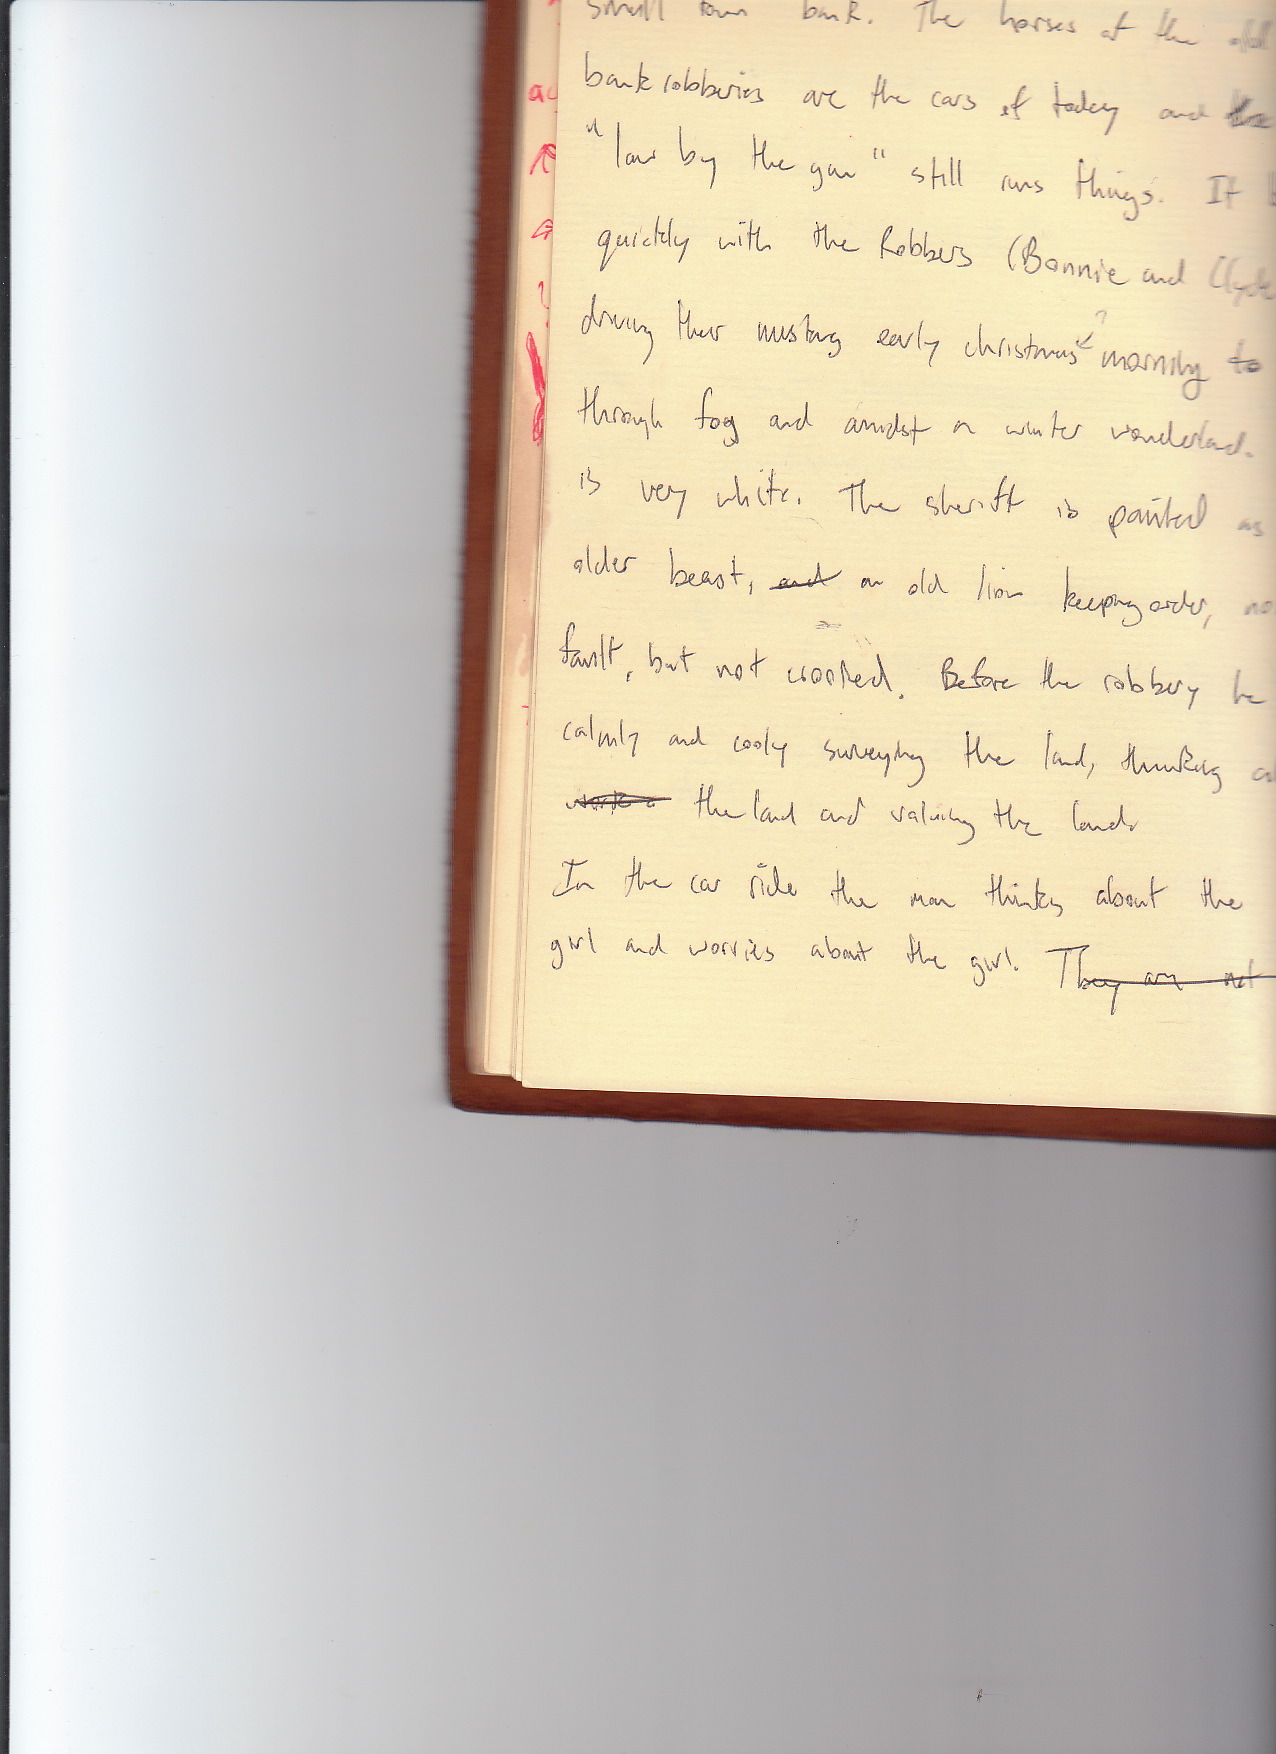 small town bank. The horses of the old
bank robberies are the cars of today and the
"law by the gun" still runs things. It
quickly with the Robbers (Bonnie and Clyde
driving their mustang early christmas ? morning to
through fog and amidst a winter wonderland.
is very white. The sheriff is painted as
older beast, and an old lion keeping order, no
fault, but not crooked. Before the robbery he
calmly and cooly surveying the land, thinking
work a the land and valuing the land.
In the car ride the man thinks about the
girl and worries about the girl. They are not